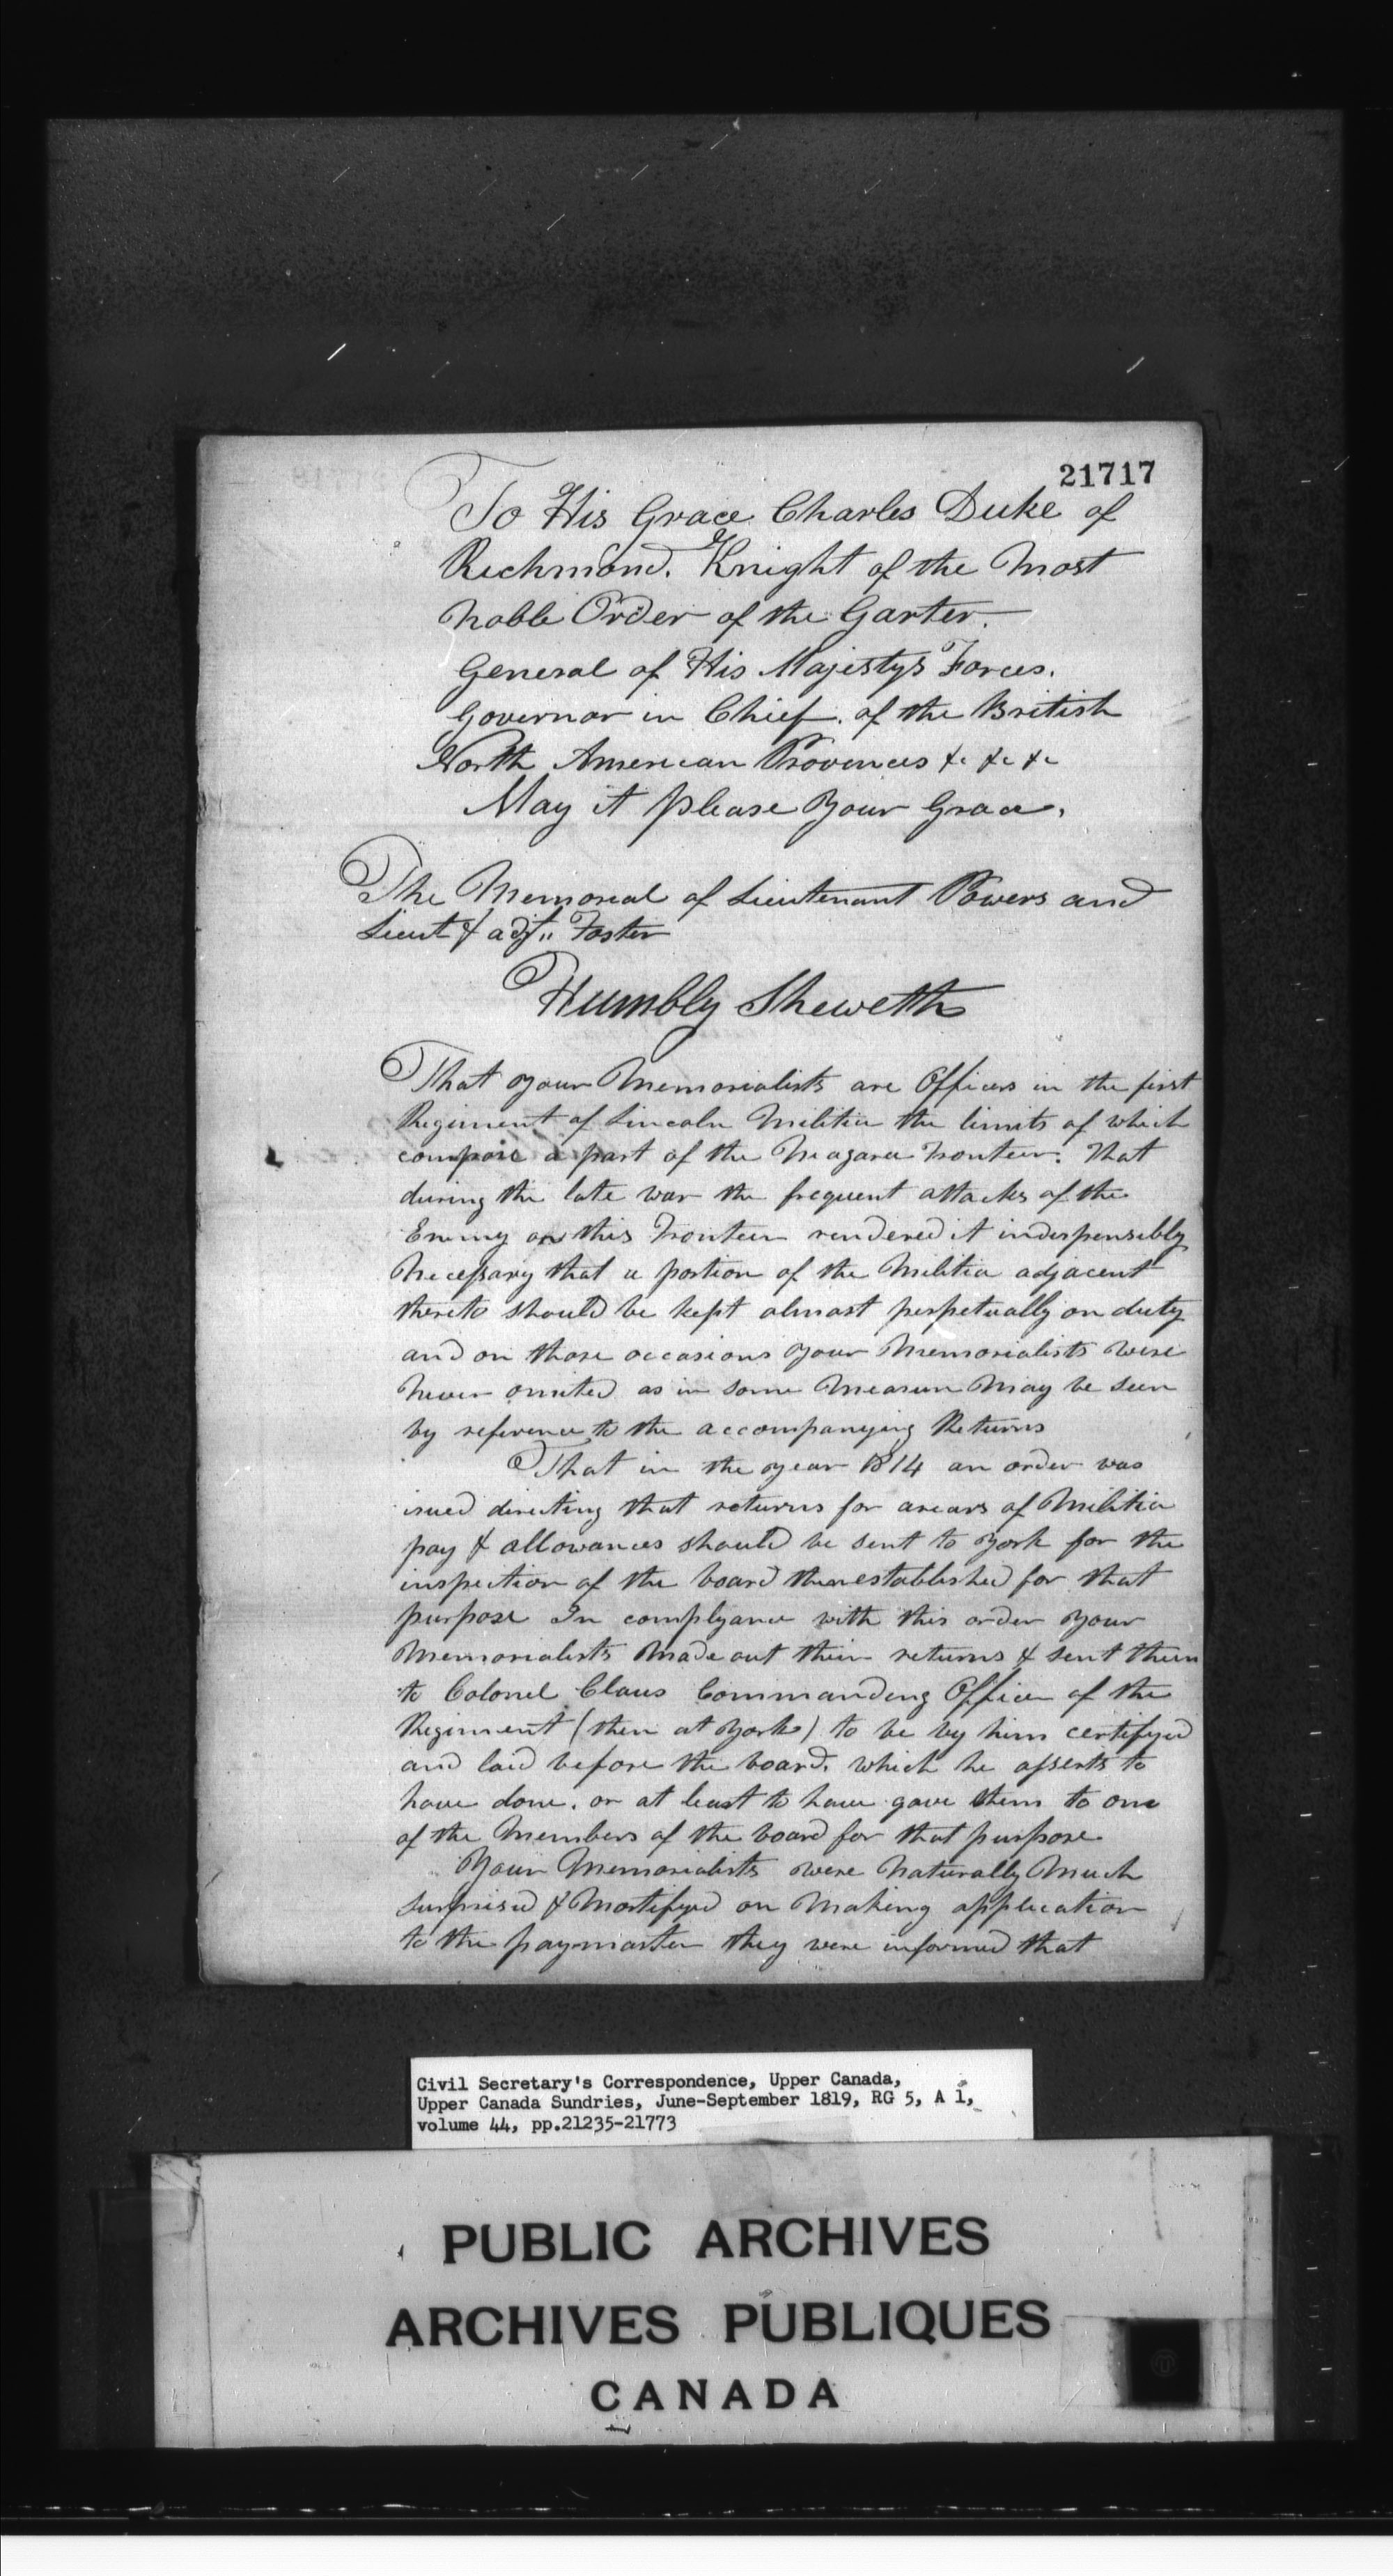 21717
To His Grace Charles Duke of
Richmond. Knight of the Most
Noble Order of the Garter.
General of His Majestys Forces.
Governor in Chief. of the British
North American Provinces &c &c &c
May it please your Grace.
The Memorial of Lieutenant Powers and
Lieut & adjt. Foster
Humbly Sheweth
That your Memorialists are Officers in the first
Regiment of Lincoln Militia the limits of which
compose a part of the Niagara Frontier. That
during the late war the frequent attacks of the
Enemy on this Frontier rendered it indespensibly
Necessary that a portion of the Militia adjacent
thereto should be kept almost perpetually on duty
and on those occasions your Memorialists were
Never omited as in some Measure May be seen
by reference to the accompanying Returns
That in the year 1814 an order was
isued directing that returns for arears of Militia
pay & allowances should be sent to York for the
inspection of the board then established for that
purpose In complyance with this order your
Memorialists Made out their returns & sent them
to Colonel Claus Commanding Officer of the
Regiment (then at York) to be by him certifyed
and laid before the board. which he asserts to
have done. or at least to have gave them to one
of the Members of the board for that purpose
Your Memorialists were Naturally Much
surprised & Mortifyed on Making application
to the paymaster they were informed that
Civil Secretary's Correspondence, Upper Canada,
Upper Canada Sundries, June-September 1819, RG 5, A 1,
volume 44, pp.21235-21773
PUBLIC ARCHIVES
ARCHIVES PUBLIQUES
CANADA